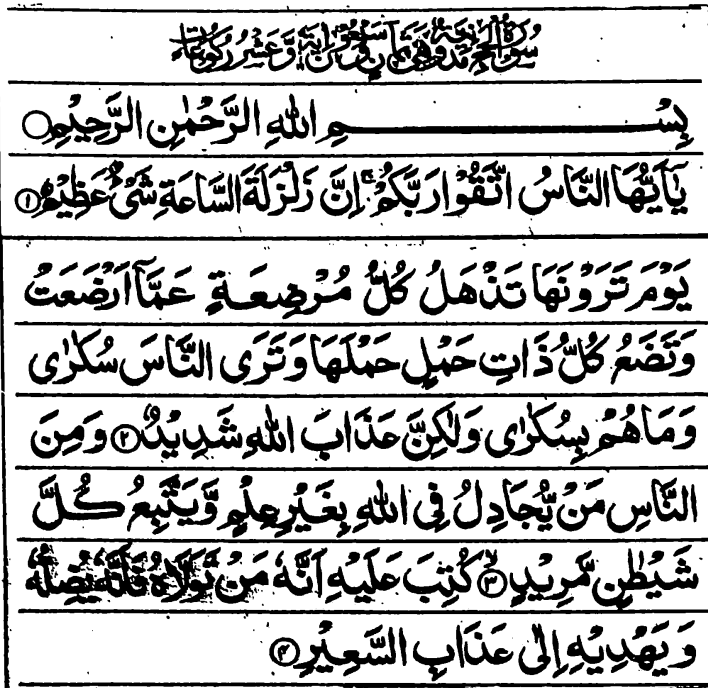 سُوْرَةُ الْحَجِّ مَدَنِيَّةٌ وَّهِيَ ثَمَانٌ وَّسَبْعُوْنَ اٰيَةً وَّعَشْرُ رُكُوْعَاتٍ
بِسْمِ اللّٰهِ الرَّحْمٰنِ الرَّحِيْمِ○
يٰۤاَيُّهَا النَّاسُ اتَّقُوْا رَبَّكُمْ ۚ اِنَّ زَلْزَلَةَ السَّاعَةِ شَيْءٌ عَظِيْمٌ ①
يَوْمَ تَرَوْنَهَا تَذْهَلُ كُلُّ مُرْضِعَةٍ عَمَّاۤ اَرْضَعَتْ
وَتَضَعُ كُلُّ ذَاتِ حَمْلٍ حَمْلَهَا وَتَرَى النَّاسَ سُكٰرٰى
وَمَا هُمْ بِسُكٰرٰى وَلٰكِنَّ عَذَابَ اللّٰهِ شَدِيْدٌ ② وَمِنَ
النَّاسِ مَنْ يُّجَادِلُ فِى اللّٰهِ بِغَيْرِ عِلْمٍ وَّيَتَّبِعُ كُلَّ
شَيْطٰنٍ مَّرِيْدٍ ۙ③ كُتِبَ عَلَيْهِ اَنَّهٗ مَنْ تَوَلَّاهُ فَاَنَّهٗ يُضِلُّهٗ
وَيَهْدِيْهِ اِلٰى عَذَابِ السَّعِيْرِ ④